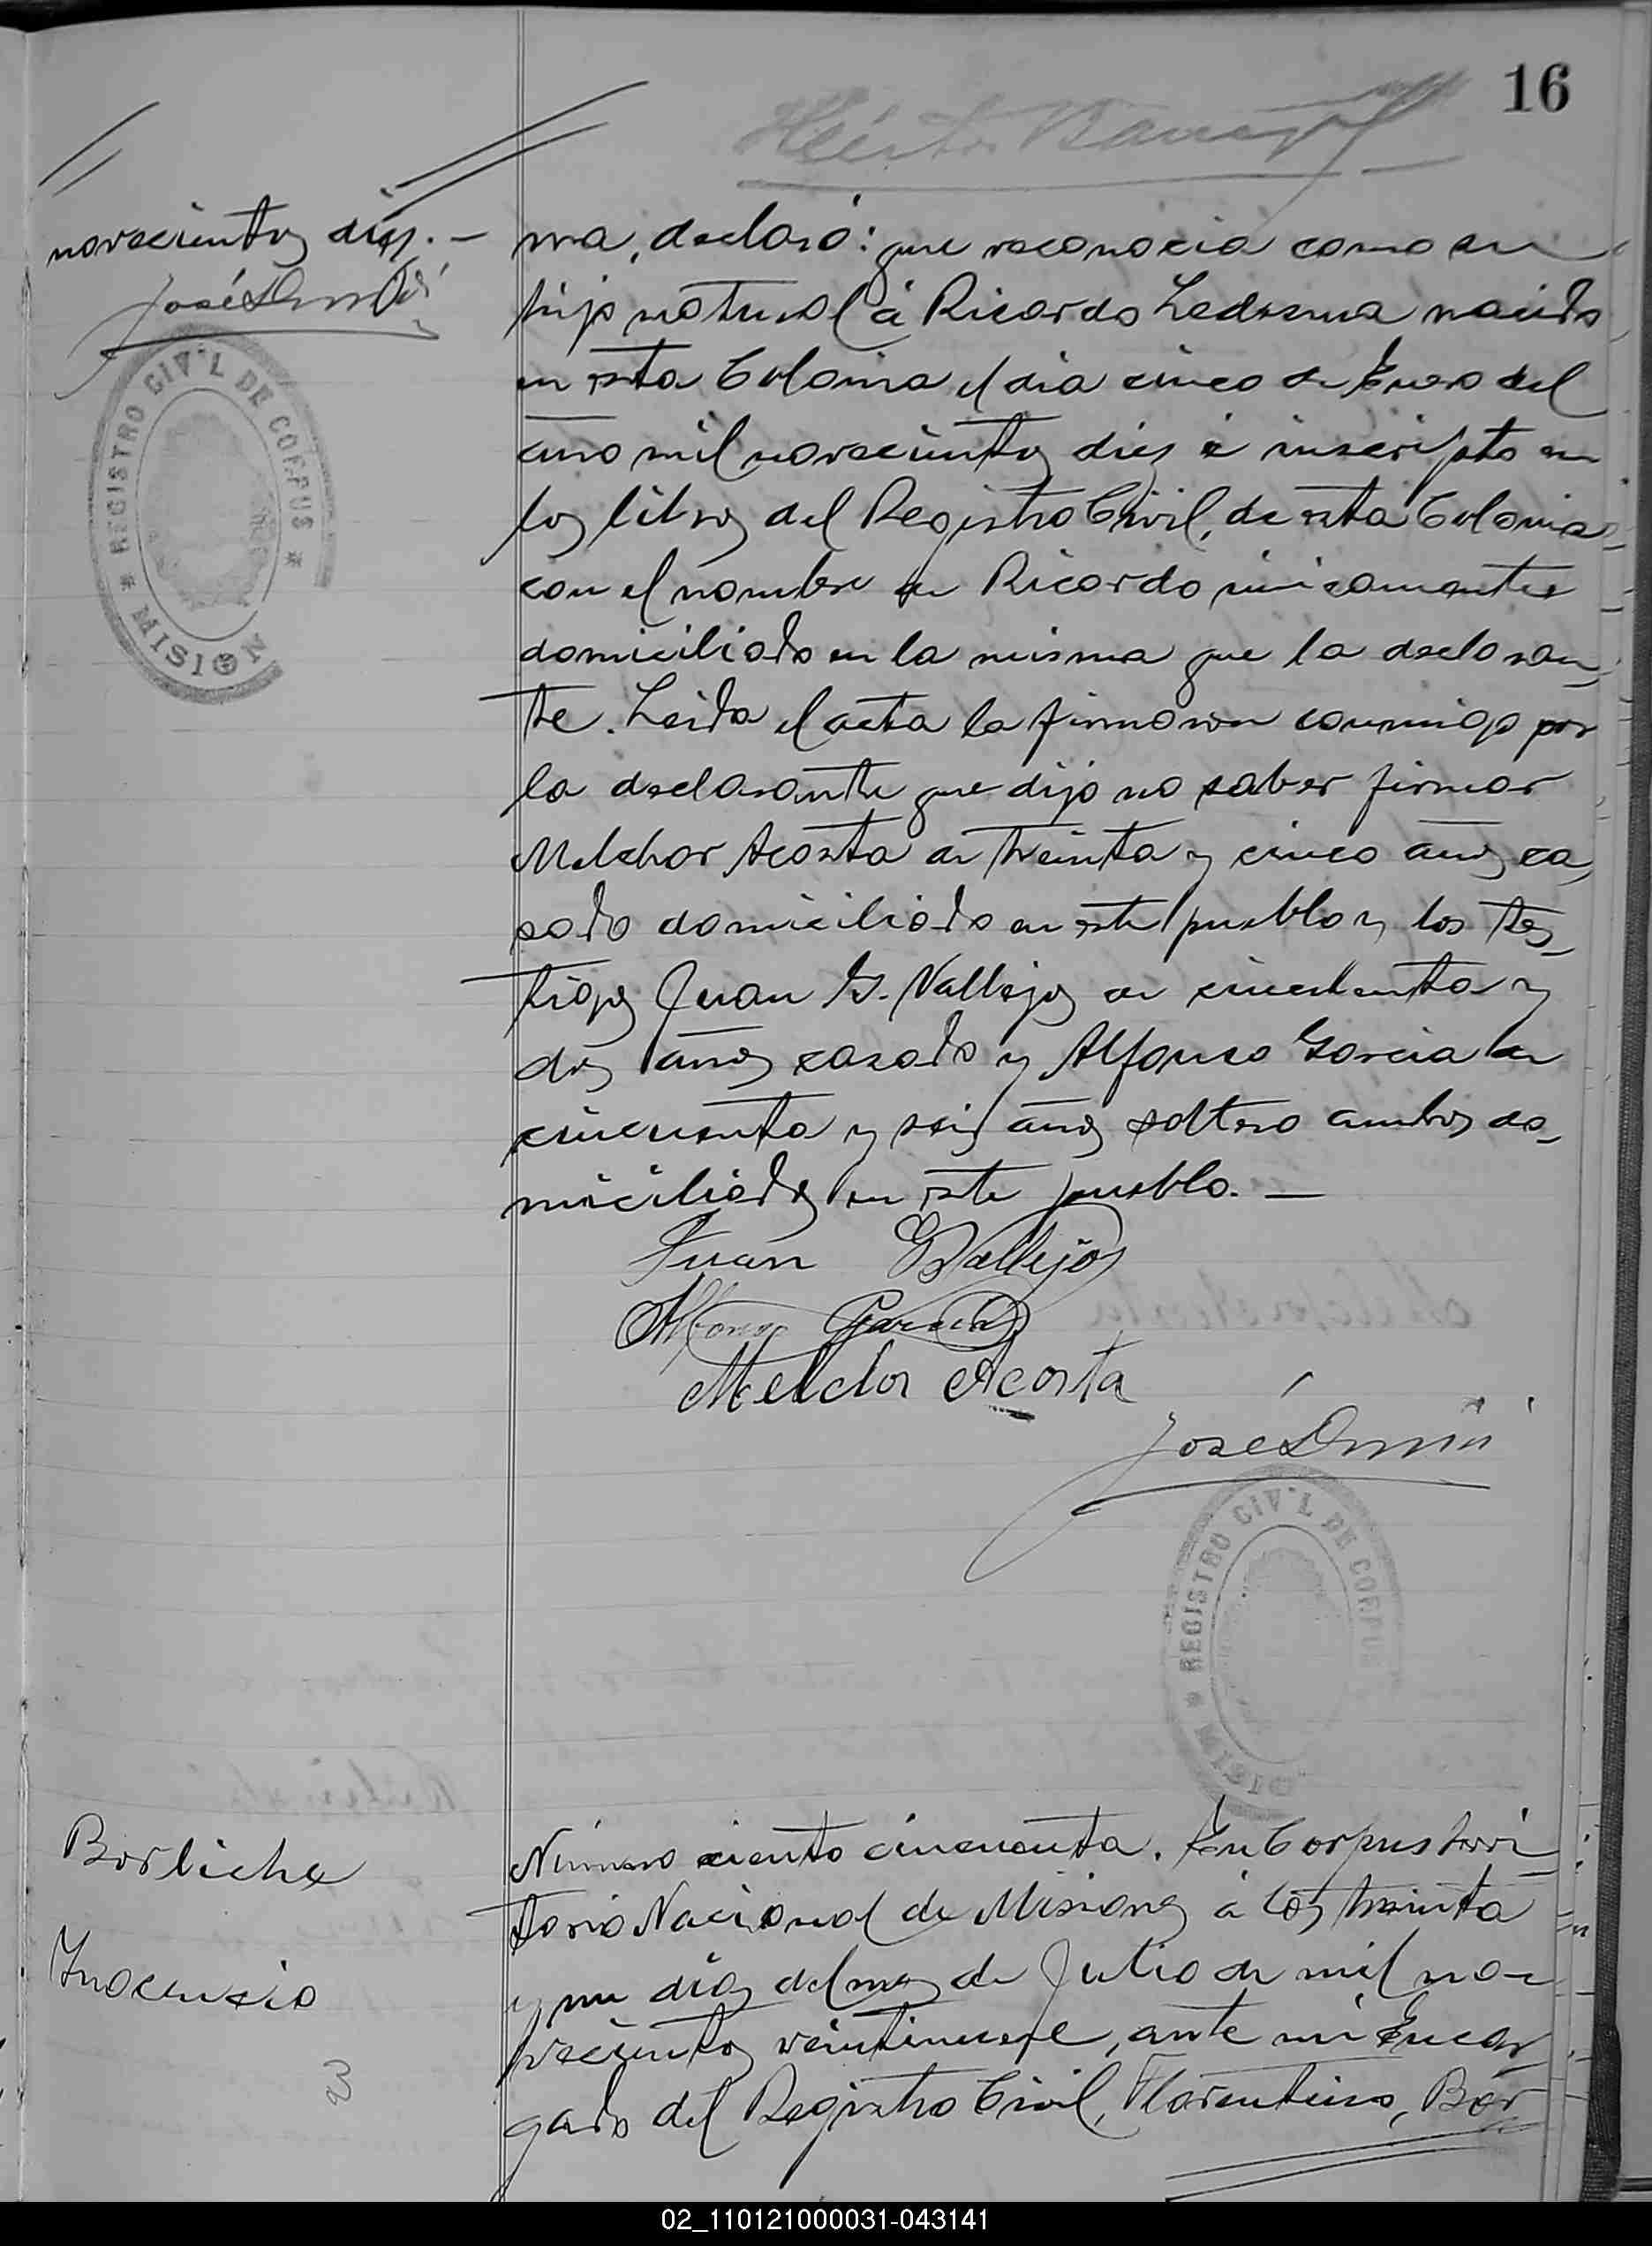 16
Héctor
novecientos diez. —
José
REGISTRO CIVIL DE CORPUS
* MISIONES *
ma, declaró: que reconocia como su
hijo natural á Ricardo Ledesma nacido
en esta Colonia el dia cinco de Enero del
año mil novecientos diez é inscripto en
los libros del Registro Civil, de esta Colonia
con el nombre de Ricardo unicamente
domiciliado en la misma que la declaran
te. Leida el acta la firmaron conmigo por
la declarante que dijo no saber firmar
Melchor Acosta de treinta y cinco años ca
sado domiciliado en este pueblo y los tes
tigos Juan G. Vallejos de cincuenta y
dos años casado y Alfonso Garcia de
cincuenta y seis años soltero ambos do
miciliados en este pueblo. —
Juan G Vallejos
Alfonso Garcia
Melchor Acosta
José
REGISTRO CIVIL DE CORPUS
* MISIO
Borliche
Inocencio
Número ciento cincuenta. En Corpus Terri
torio Nacional de Misiones á los treinta
y un dias del mes de Julio de mil no
vecientos veintinueve, ante mi Encar
gado del Registro Civil, Florentino, Bor
02_110121000031-043141